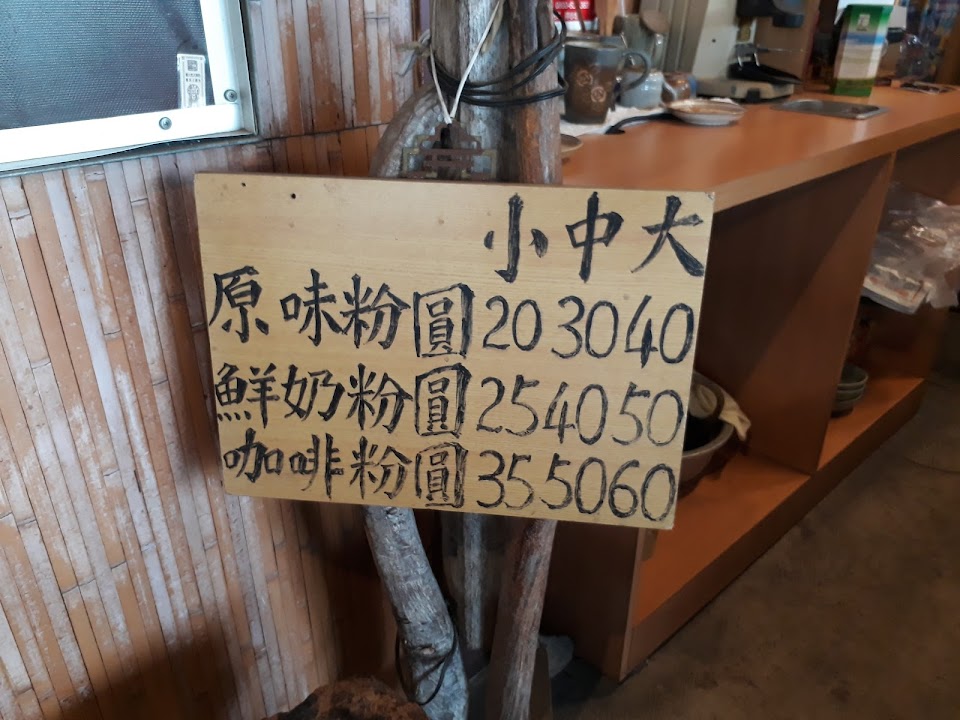 小中大
原味粉圓 20 30 40
鮮奶粉圓 25 40 50
咖啡粉圓 35 50 60